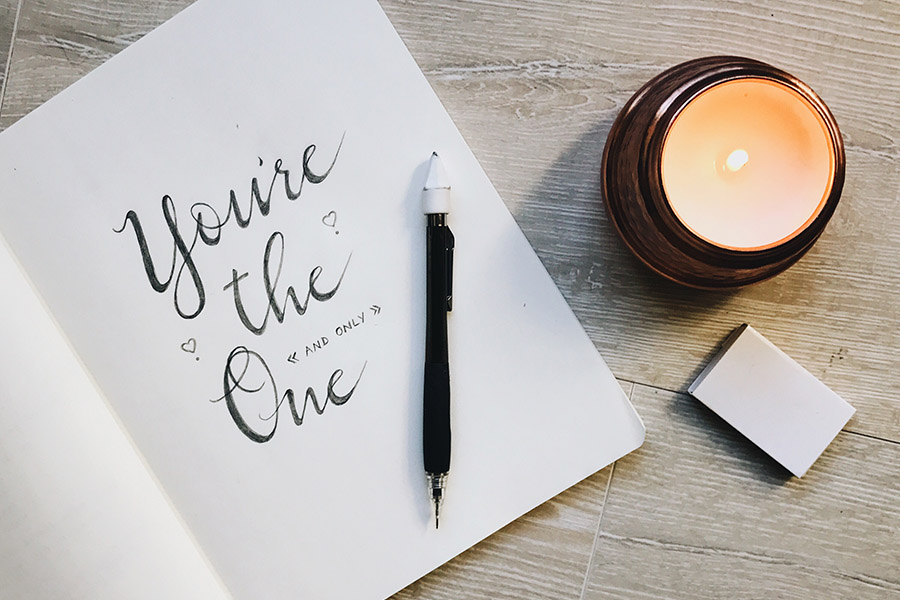 You're
the
« AND ONLY »
One